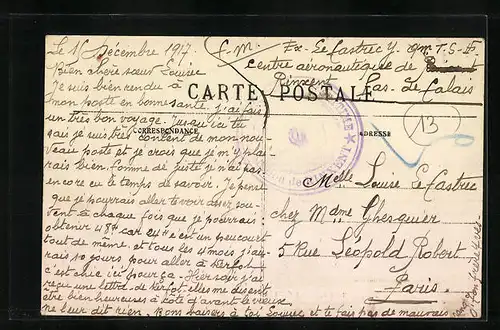 Le 16 Décembre 1917.
Bien chère sœur Louise
Je suis bien rendu à
mon poste en bonne santé. j'ai fais
un très bon voyage. Jusqu'ici tu
sais je suis très content de mon nou-
veau poste et je crois que je m'y plai-
rais bien. Comme de juste je n'ai pas
encore eu le temps de savoir. Je pense
que je pourrais aller te voir assez sou-
vent à chaque fois que je pourrais
obtenir 48H car 24H c'est un peu court
tout de même. et tous les 4 mois j'au-
rais 10 jours pour aller à
c'est chic ici pour ça. Hier soir j'ai
reçu une lettre de elles me disent
être bien heureuses à côté d'avant le vieux
ne leur dit rien. Bon baisers à toi Louise et te fais pas de mauvais
F.M. Ex. Le Castrec Y. T.S.F.
Centre aéronautique de
Rinxent Pas-de-Calais
CARTE POSTALE
CORRESPONDANCE
ADRESSE
13
Melle Louise Le Castrec
chez Mdme Ghesquier
5 Rue Léopold Robert
Paris
Ton frère Yves